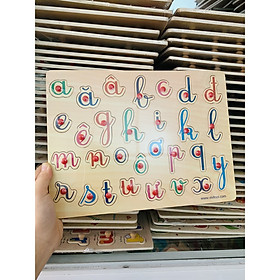 a ă â b c d đ
e ê g h i k l
m n o ô ơ p q
r s t u ư v x y